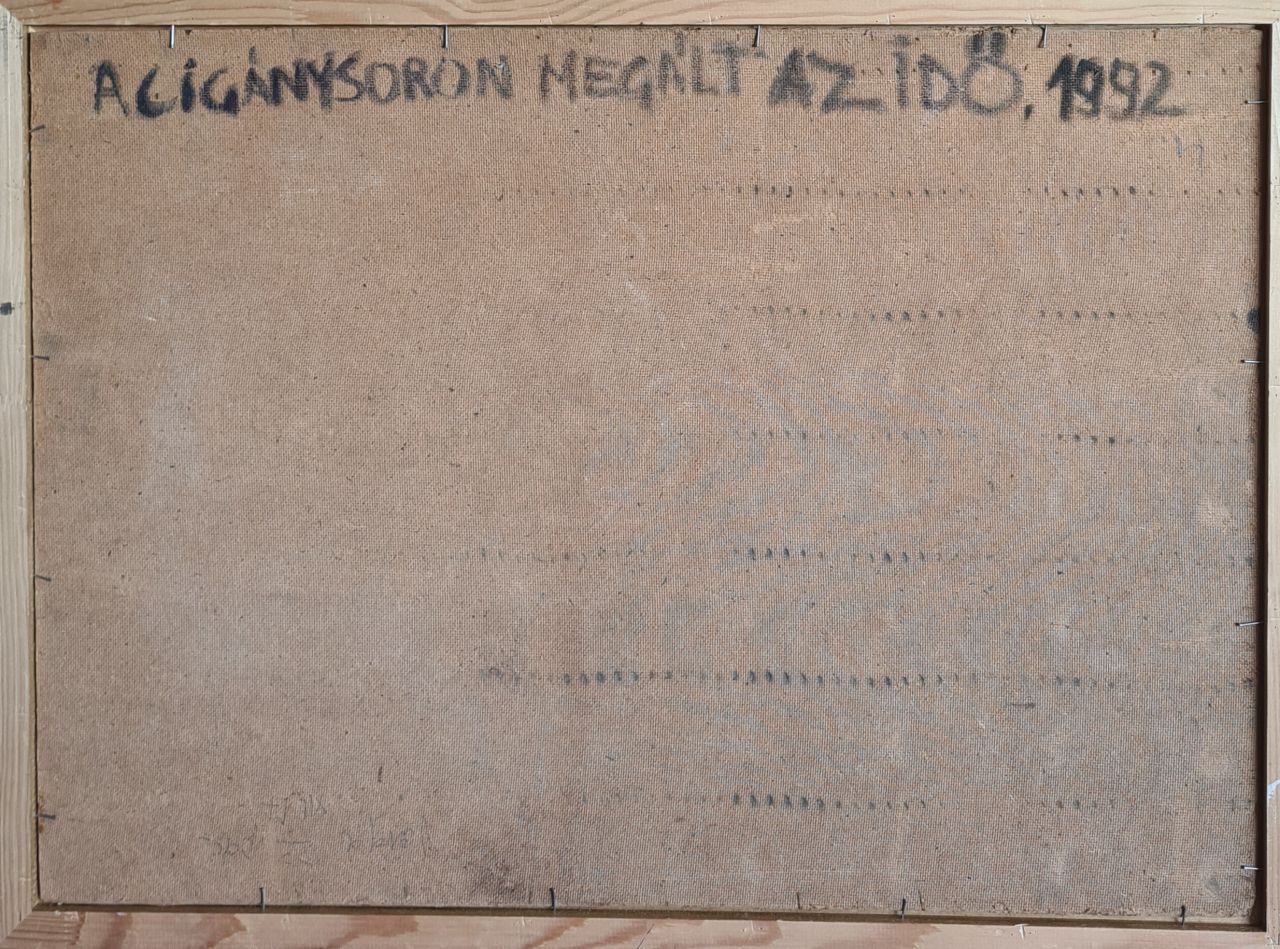 A CIGÁNYSORON MEGÁLT AZ IDŐ, 1992